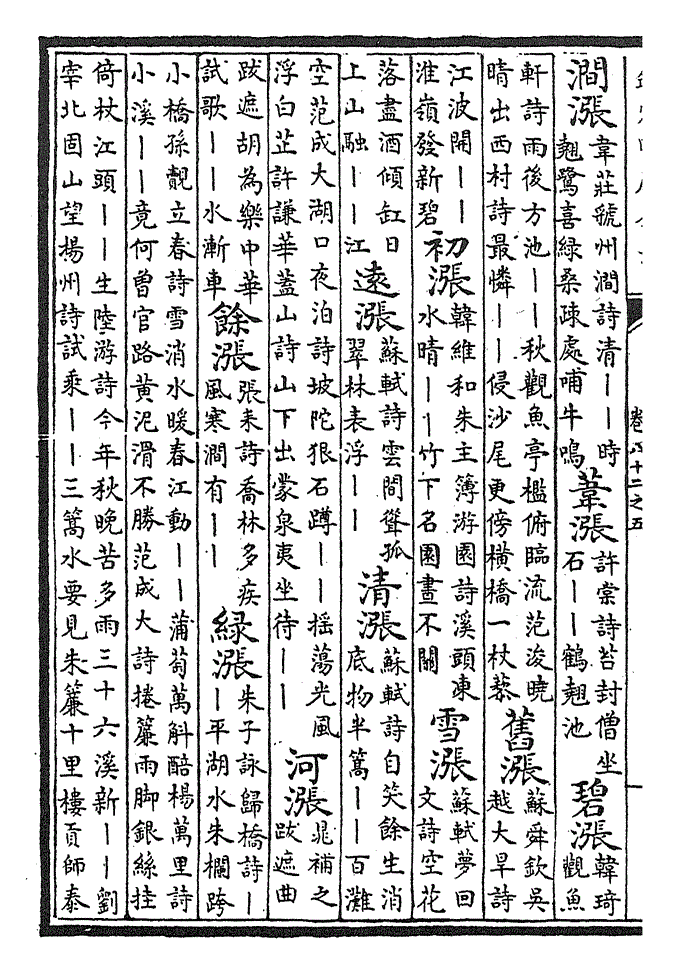 卷八十二之五
澗漲韋莊虢州澗詩清丨丨時翹鷺喜綠桑疎處哺牛鳴葦漲許棠詩苔封僧坐石丨丨鶴翹池碧漲韓琦觀魚
軒詩雨後方池丨丨秋觀魚亭檻俯臨流范浚曉晴出西村詩最憐丨丨侵沙尾更傍橫橋一杖藜舊漲蘇舜欽吳越大旱詩
江波開丨丨淮嶺發新碧初漲韓維和朱主簿游園詩溪頭凍水晴丨丨竹下名園晝不關雪漲蘇軾夢回文詩空花
落盡酒傾缸日上山融丨丨江遠漲蘇軾詩雲間聳孤翠林表浮丨丨清漲蘇軾詩自笑餘生消底物半篙丨丨百灘
空范成大湖口夜泊詩坡陀狠石蹲丨丨搖蕩光風浮白芷許謙華蓋山詩山下出蒙泉夷坐待丨丨河漲晁補之跋遮曲
跋遮胡為樂中華試歌丨丨水漸車餘漲張耒詩喬林多疾風寒澗有丨丨綠漲朱子詠歸橋詩丨丨平湖水朱欄跨
小橋孫覿立春詩雪消水暖春江動丨丨蒲萄萬斛醅楊萬里詩小溪丨丨竟何曽官路黃泥滑不勝范成大詩捲簾雨脚銀絲挂
倚杖江頭丨丨生陸游詩今年秋晚苦多雨三十六溪新丨丨劉宰北固山望楊州詩試乘丨丨三篙水要見朱簾十里樓貢師泰